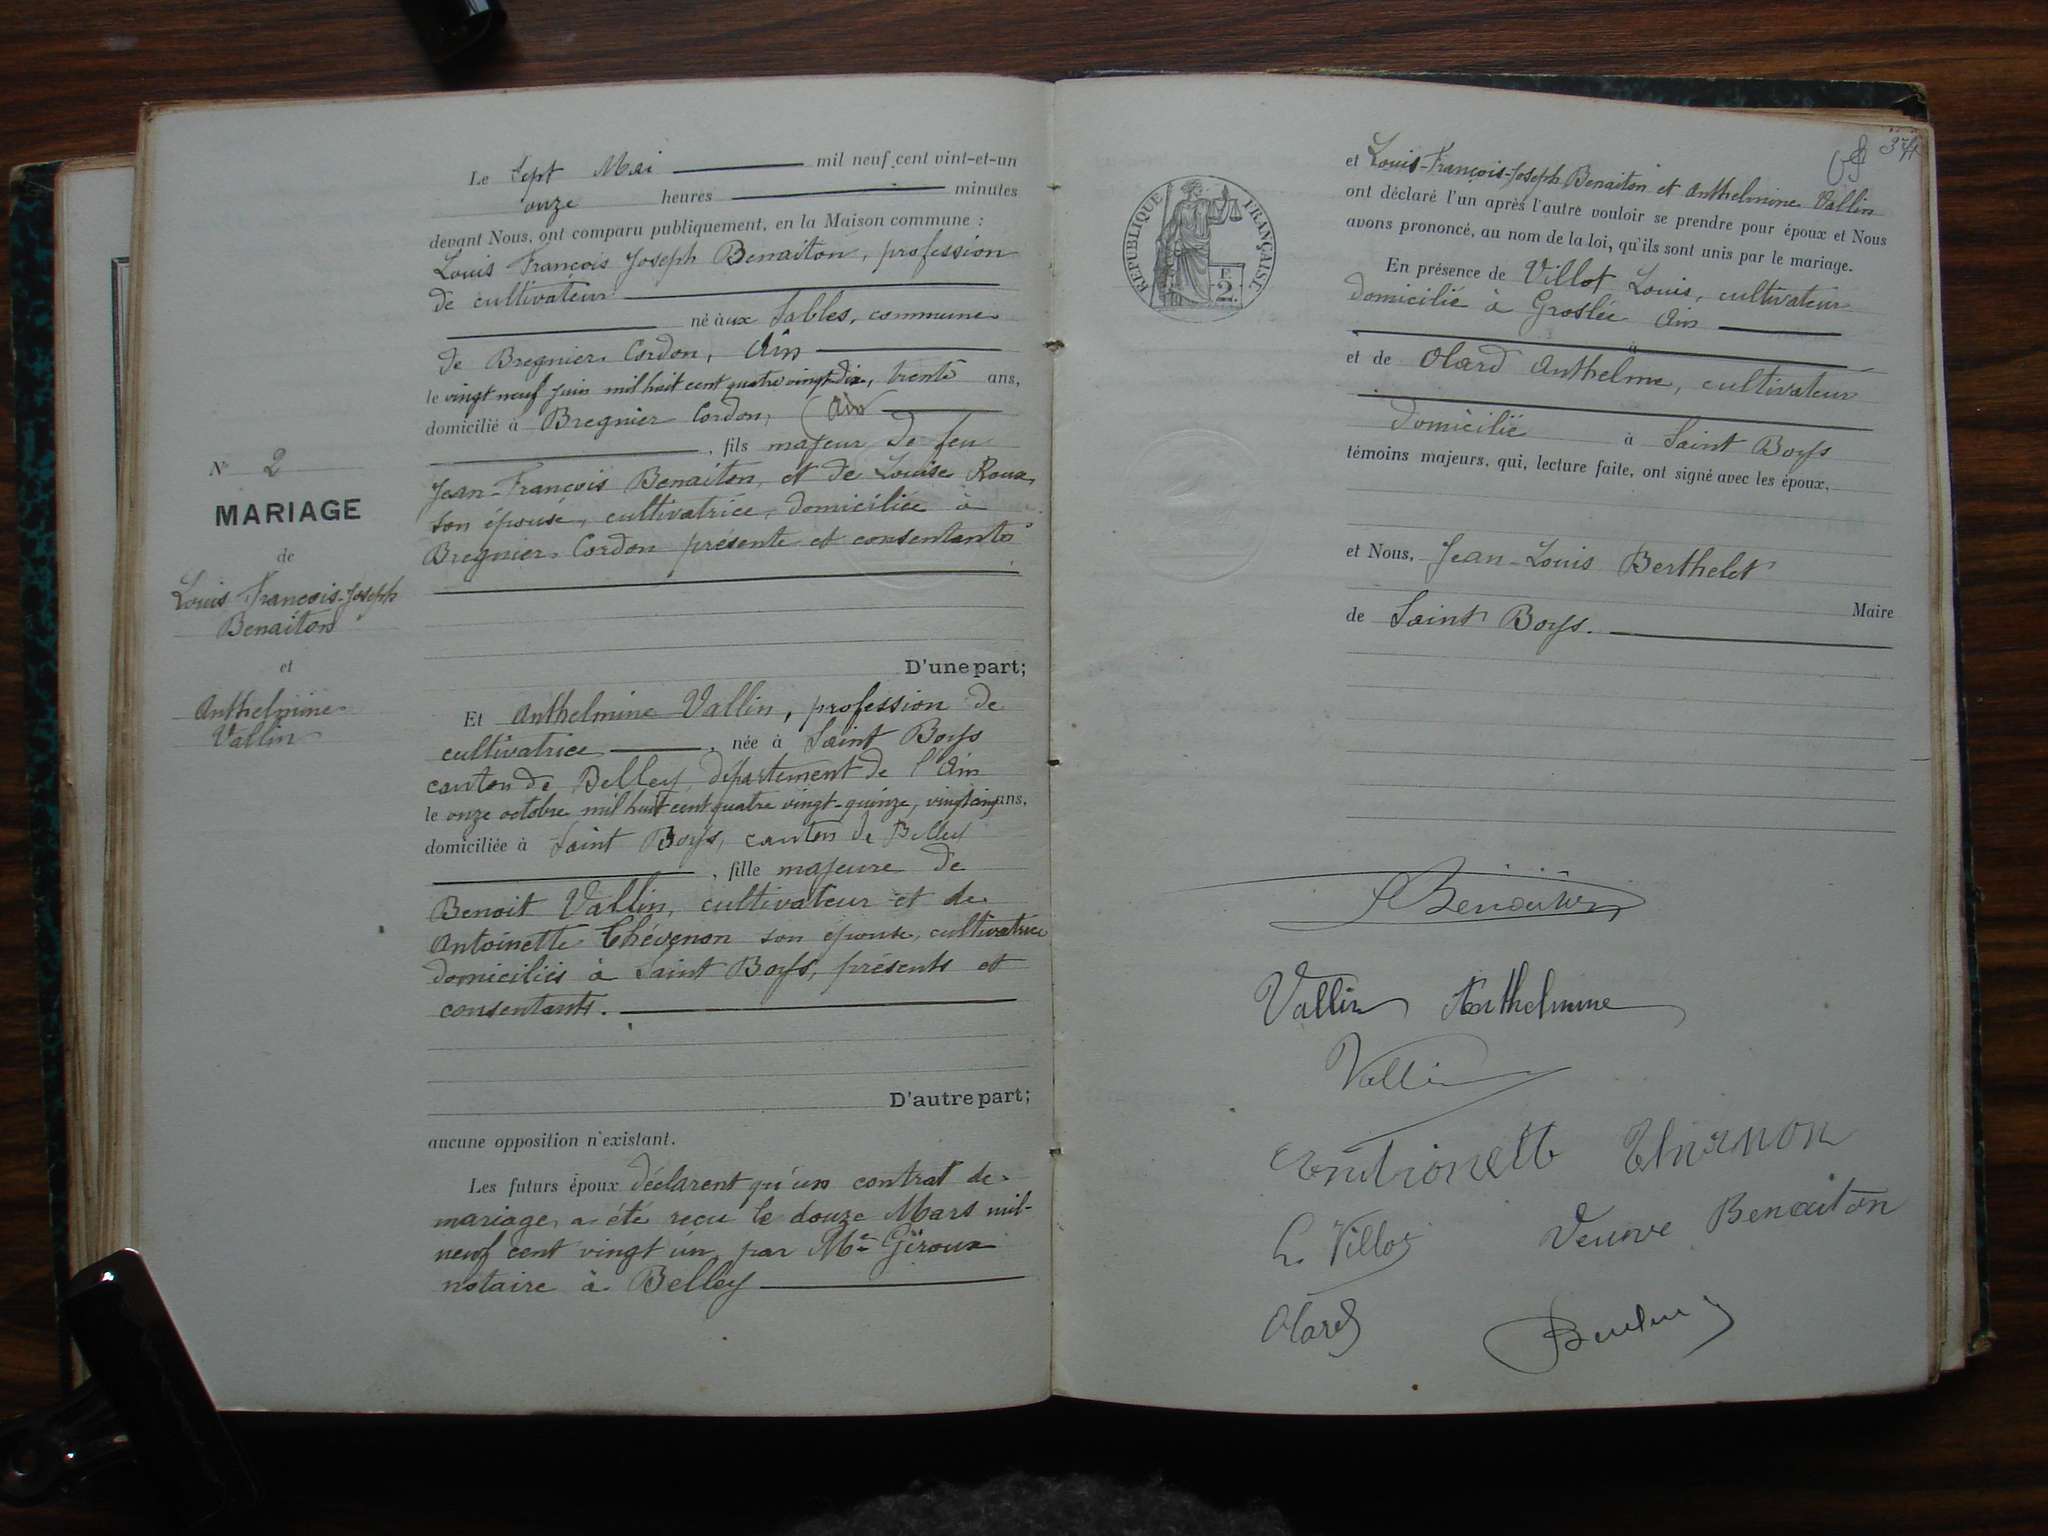 Le Sept Mai mil neuf cent vint-et-un
onze heures minutes
devant Nous, ont comparu publiquement, en la Maison commune :
Louis François Joseph Benaiton, profession
de cultivateur
né aux Sables, commune
de Bregnier-Cordon, Ain
le vingt neuf juin mil huit cent quatre vingt-dix, trente ans,
domicilié à Bregnier Cordon, Ain
, fils majeur de feu
Jean-François Benaiton, et de Louise Roux,
son épouse, cultivatrice, domiciliée à
Bregnier-Cordon présente et consentante
N° 2
MARIAGE
de
Louis François-Joseph
Benaiton
et
Anthelmine
Vallin
D'une part;
Et Anthelmine Vallin, profession de
cultivatrice, née à Saint Boys
canton de Belley, département de l'Ain
le onze octobre mil huit cent quatre vingt-quinze, vingt cinq ans,
domiciliée à Saint Boys, canton de Belley
, fille majeure de
Benoit Vallin, cultivateur et de
Antoinette Thévenon son épouse, cultivatrice
domiciliés à Saint Boys, présents et
consentants.
D'autre part;
aucune opposition n'existant.
Les futurs époux déclarent qu'un contrat de
mariage a été reçu le douze Mars mil-
neuf cent vingt un, par Me Giroux
notaire à Belley
374
RÉPUBLIQUE FRANÇAISE
F.
2
et Louis-François-Joseph Benaiton et Anthelmine Vallin
ont déclaré l'un après l'autre vouloir se prendre pour époux et Nous
avons prononcé, au nom de la loi, qu'ils sont unis par le mariage.
En présence de Villot Louis, cultivateur
domicilié à Groslée Ain
à
et de Olard Anthelme, cultivateur
domicilié à Saint Boys
témoins majeurs, qui, lecture faite, ont signé avec les époux,
et Nous, Jean-Louis Berthelet
Maire
de Saint Boys.
Benaiton
Vallin Anthelmine
Vallin
Veuve Benaiton
L. Villot
Olard